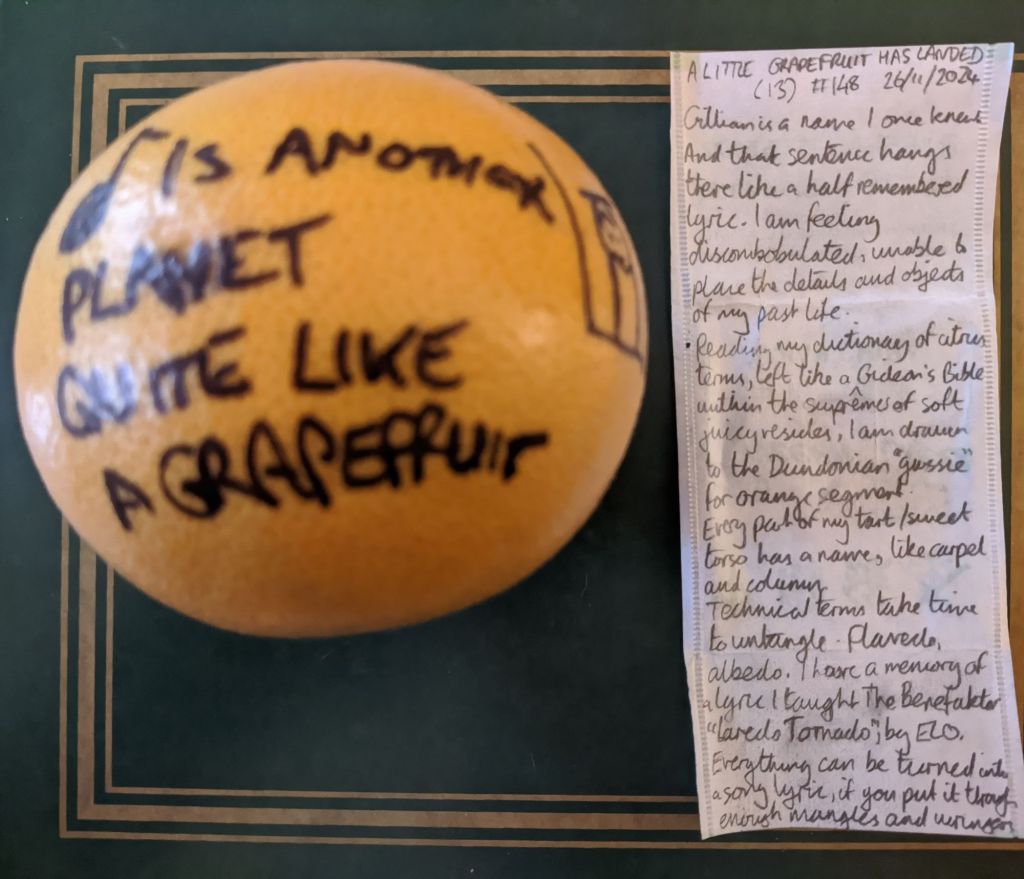 IS ANOTHER
PLANET
QUITE LIKE
A GRAPEFRUIT
A LITTLE GRAPEFRUIT HAS LANDED
(13) #148 26/11/2024
Gillian is a name I once knew
And that sentence hangs
there like a half remembered
lyric. I am feeling
discombobulated, unable to
place the details and objects
of my past life.
Reading my dictionary of citrus
terms, left like a Gideon's Bible
within the suprêmes of soft
juicy vesicles, I am drawn
to the Dundonian "gussie"
for orange segment.
Every part of my tart/sweet
torso has a name, like carpel
and column
Technical terms take time
to untangle. Flavedo,
albedo. I have a memory of
a lyric I taught The Benefaktor
"Laredo Tornado", by ELO.
Everything can be turned into
a song lyric, if you put it through
enough mangles and wringers